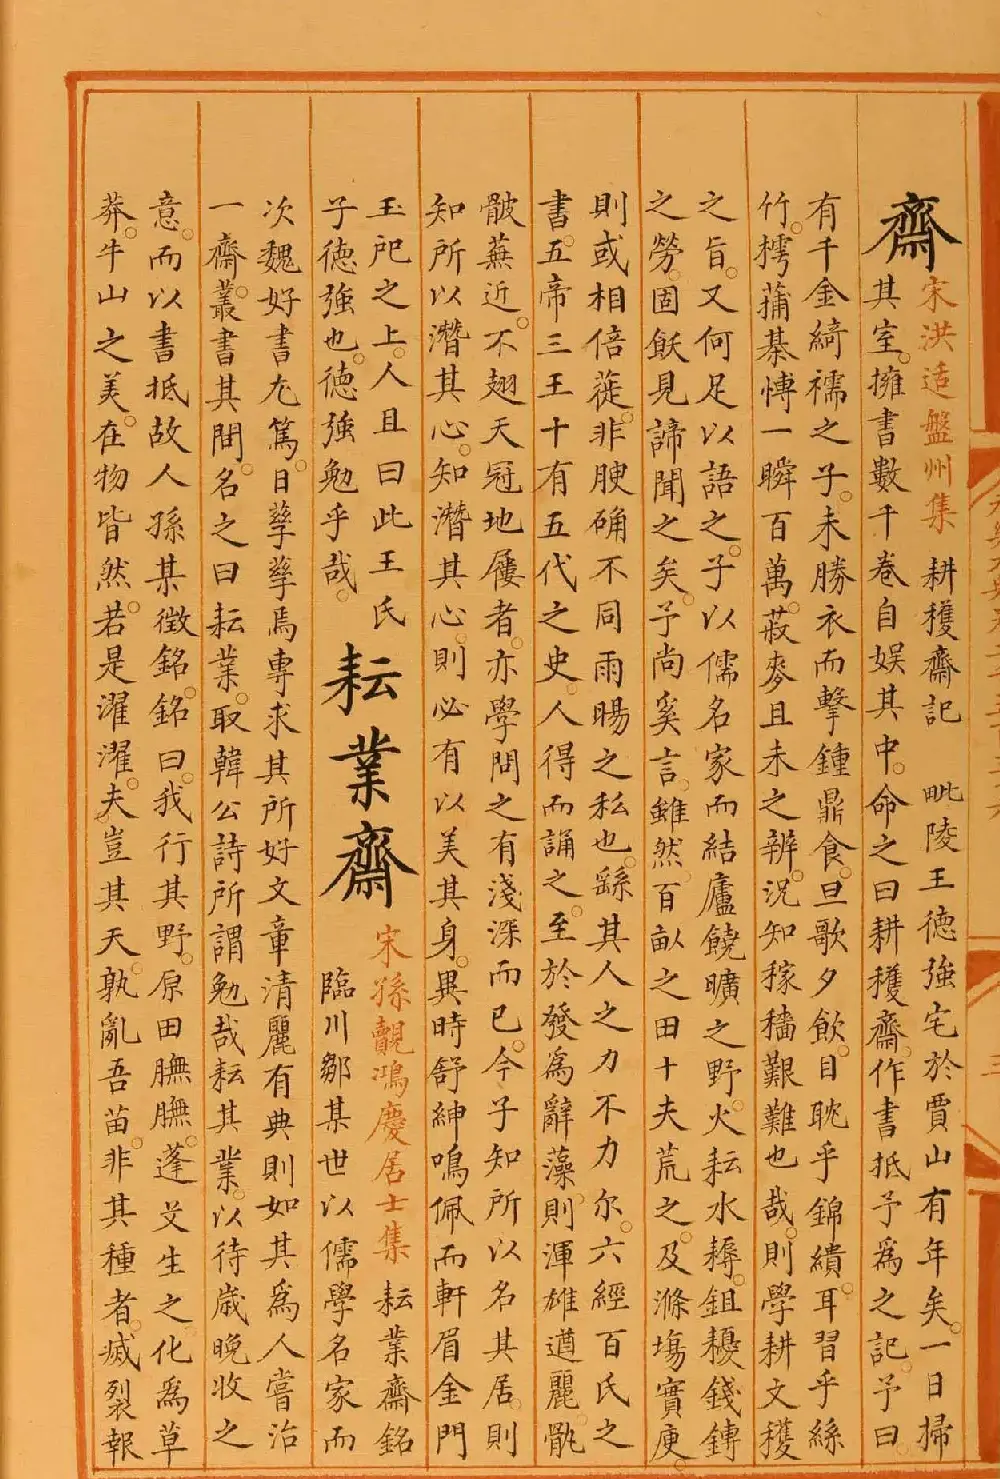 齋
宋洪适盤州集 耕穫齋記 毗陵王德強宅於賈山有年矣一日掃
其室擁書數千卷自娛其中命之曰耕穫齋作書抵予為之記予曰
有千金綺襦之子未勝衣而擊鍾鼎食旦歌夕飲目耽乎錦繢耳習乎絲
竹樗蒱棊愽一瞬百萬菽麥且未之辨況知稼穡艱難也哉則學耕文穫
之旨又何足以語之子以儒名家而結廬饒曠之野火耘水耨鉏耰錢鎛
之勞固飫見諦聞之矣予尚奚言雖然百畝之田十夫荒之及滌塲實庾
則或相倍蓰非腴确不同雨暘之私也繇其人之力不力尔六經百氏之
書五帝三王十有五代之史人得而誦之至於發為辭藻則渾雄遒麗骫
骳蕪近不翅天冠地屨者亦學問之有淺深而已今子知所以名其居則
知所以濳其心知濳其心則必有以美其身異時舒紳鳴佩而軒眉金門
玉戺之上人且曰此王氏
子德強也德強勉乎哉
耘業齋
宋孫覿鴻慶居士集 耘業齋銘
臨川鄒某世以儒學名家而
次魏好書尤篤日孳孳焉專求其所好文章清麗有典則如其為人嘗治
一齋叢書其間名之曰耘業取韓公詩所謂勉哉耘其業以待歲晚收之
意而以書抵故人孫某徵銘銘曰我行其野原田膴膴蓬艾生之化為草
莽牛山之美在物皆然若是濯濯夫豈其天孰亂吾苗非其種者烕裂報